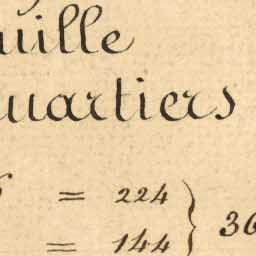 uille
uartiers
= 224 } 36
= 144